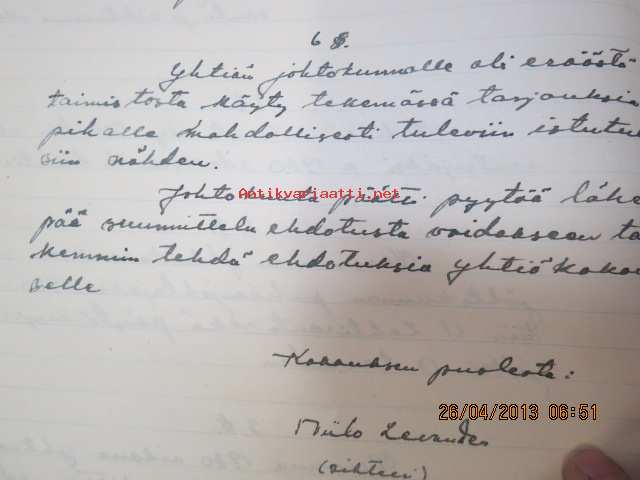 6 §.
Yhtiön johtokunnalle oli eräästä
taimistosta käyty tekemässä tarjouksia
pihalle mahdollisesti tuleviin istutuk
siin nähden.
Johtokunta päätti pyytää lähe
pää suunnittelu ehdotusta voidakseen ta
kemmin tehdä ehdotuksia yhtiökokou
selle
Antikvariaatti.net
Kokouksen puolesta:
26/04/2013 06:51
Niilo Levander
(sihteeri)